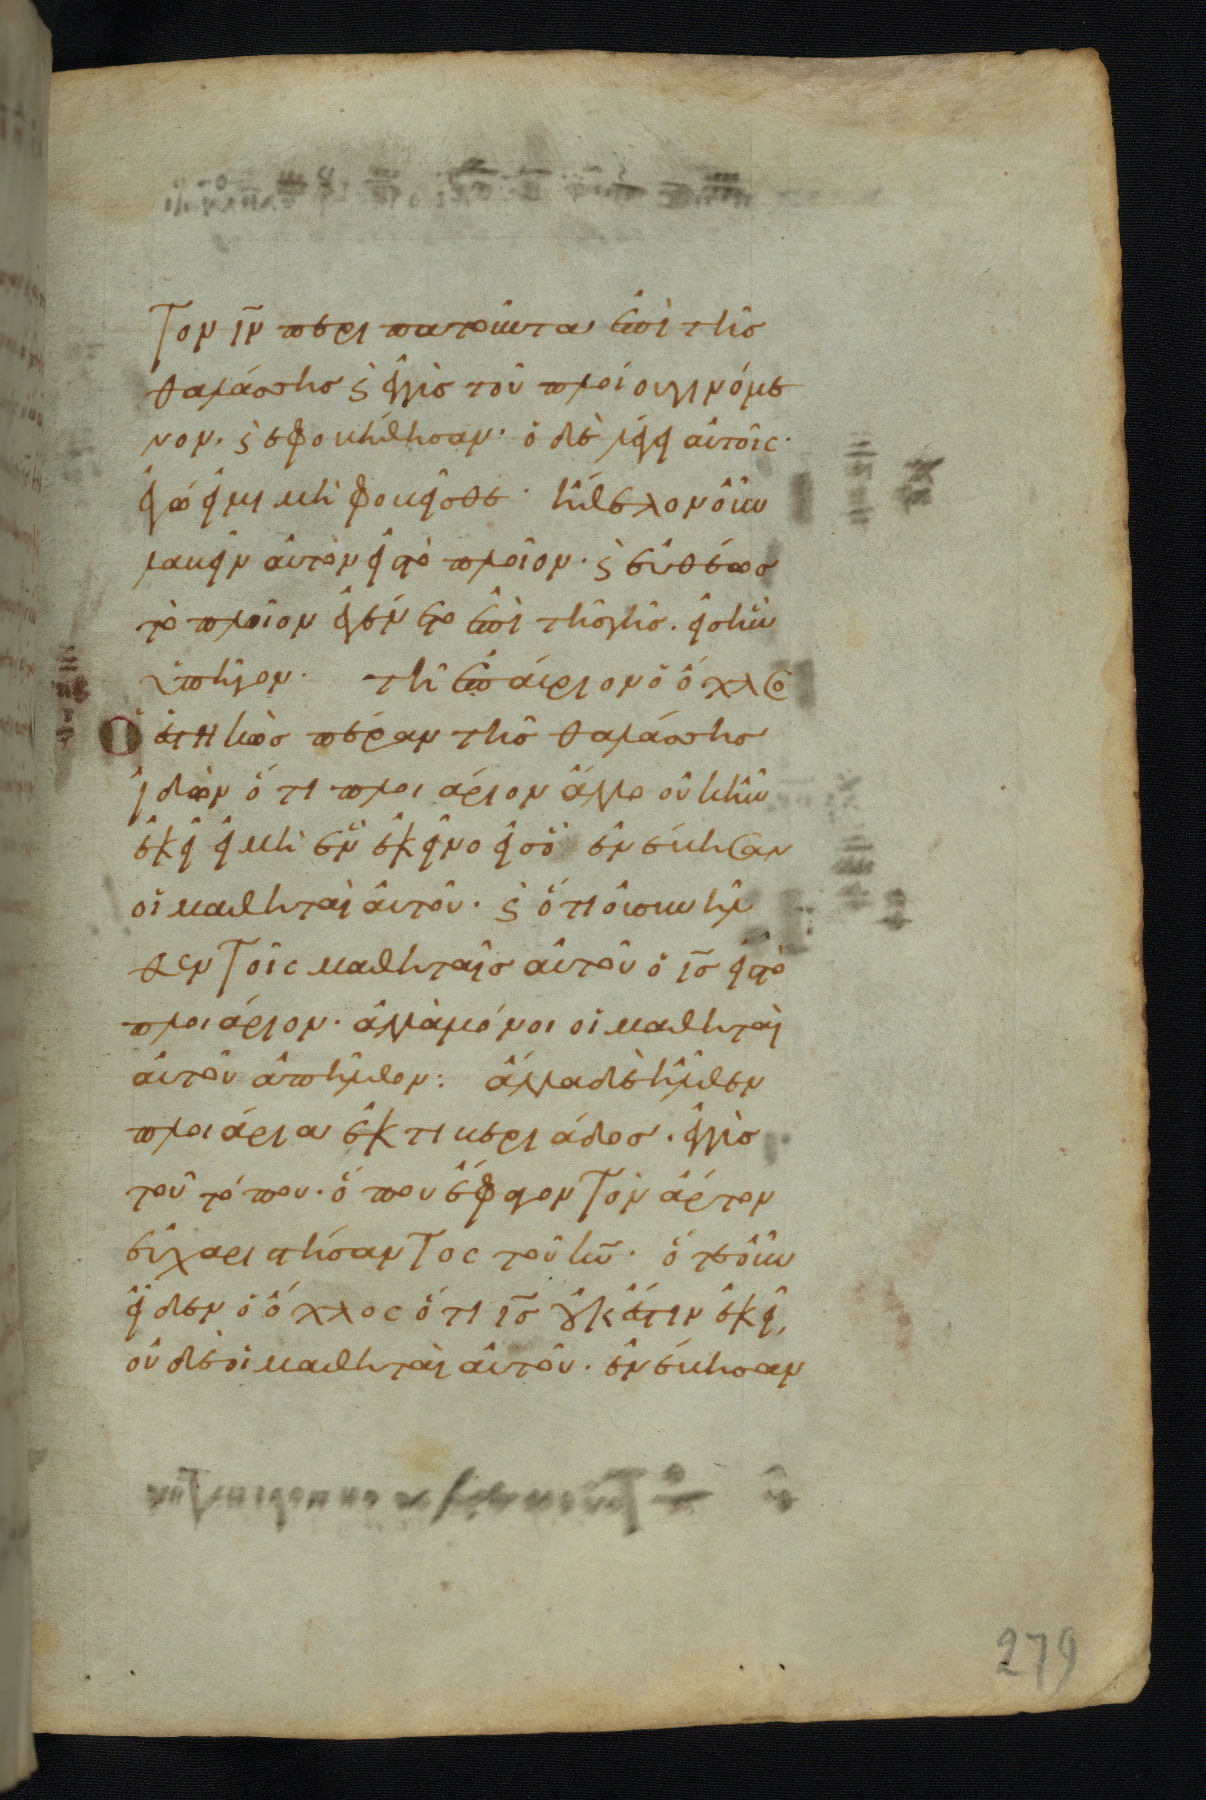 τον ιν̅ περιπατοῦντα ἐπὶ τῆς
θαλάσσης ϗ ἐγγὺς τοῦ πλοίου γινόμε
νον. ϗ ἐφοβήθησαν· ὁ δὲ λέγει αὐτοῖς·
ἐγώ εἰμι μὴ φοβεῖσθε· ἤθελον οὖν
λαβεῖν αὐτὸν εἰς τὸ πλοῖον· ϗ εὐθέως
τὸ πλοῖον ἐγένετο ἐπὶ τῆς γῆς. εἰς ἣν
ὑπῆγον· τῆ ἐπαύριον ὁ ὄχλος
ὁ ἑστηκὼς πέραν τῆς θαλάσσης
ἰδὼν ὅτι πλοιάριον ἄλλο οὐκ ἦν
ἐκεῖ εἰ μὴ ἓν ἐκεῖνο εἰς ὃ ἐνέβησαν
οἱ μαθηταὶ αὐτοῦ. ϗ ὅτι οὐ συνῆλ
θεν τοῖς μαθηταῖς αὐτοῦ ὁ ις̅ εἰς τὸ
πλοιάριον· ἀλλὰ μόνοι οἱ μαθηταὶ
αὐτοῦ ἀπῆλθον: ἄλλα δὲ ἦλθεν
πλοιάρια ἐκ τιβεριάδος. ἐγγὺς
τοῦ τόπου. ὅπου ἔφαγον τὸν ἄρτον
εὐχαριστήσαντος τοῦ κυ̅. ὅτε οὖν
εἶδεν ὁ ὄχλος ὅτι ις̅ οὐκ ἔστιν ἐκεῖ,
οὐδὲ οἱ μαθηταὶ αὐτοῦ. ἐνέβησαν
279